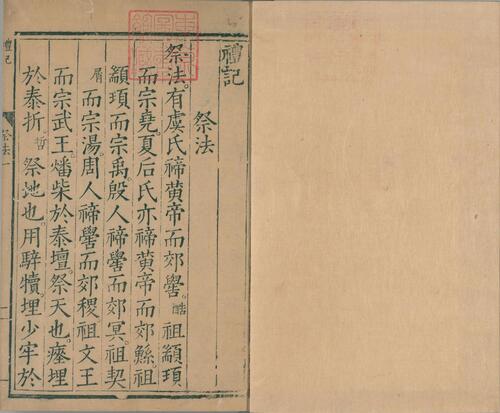 禮記
祭法
祭法。有虞氏禘黃帝而郊嚳。酷祖顓頊
而宗堯。夏后氏亦禘黃帝而郊鯀。祖
顓頊而宗禹。殷人禘嚳而郊冥。祖契
屑而宗湯。周人禘嚳而郊稷。祖文王
而宗武王。燔柴於泰壇。祭天也。瘞埋
於泰折。哲祭地也。用騂犢。埋少牢於
禮記
祭法一